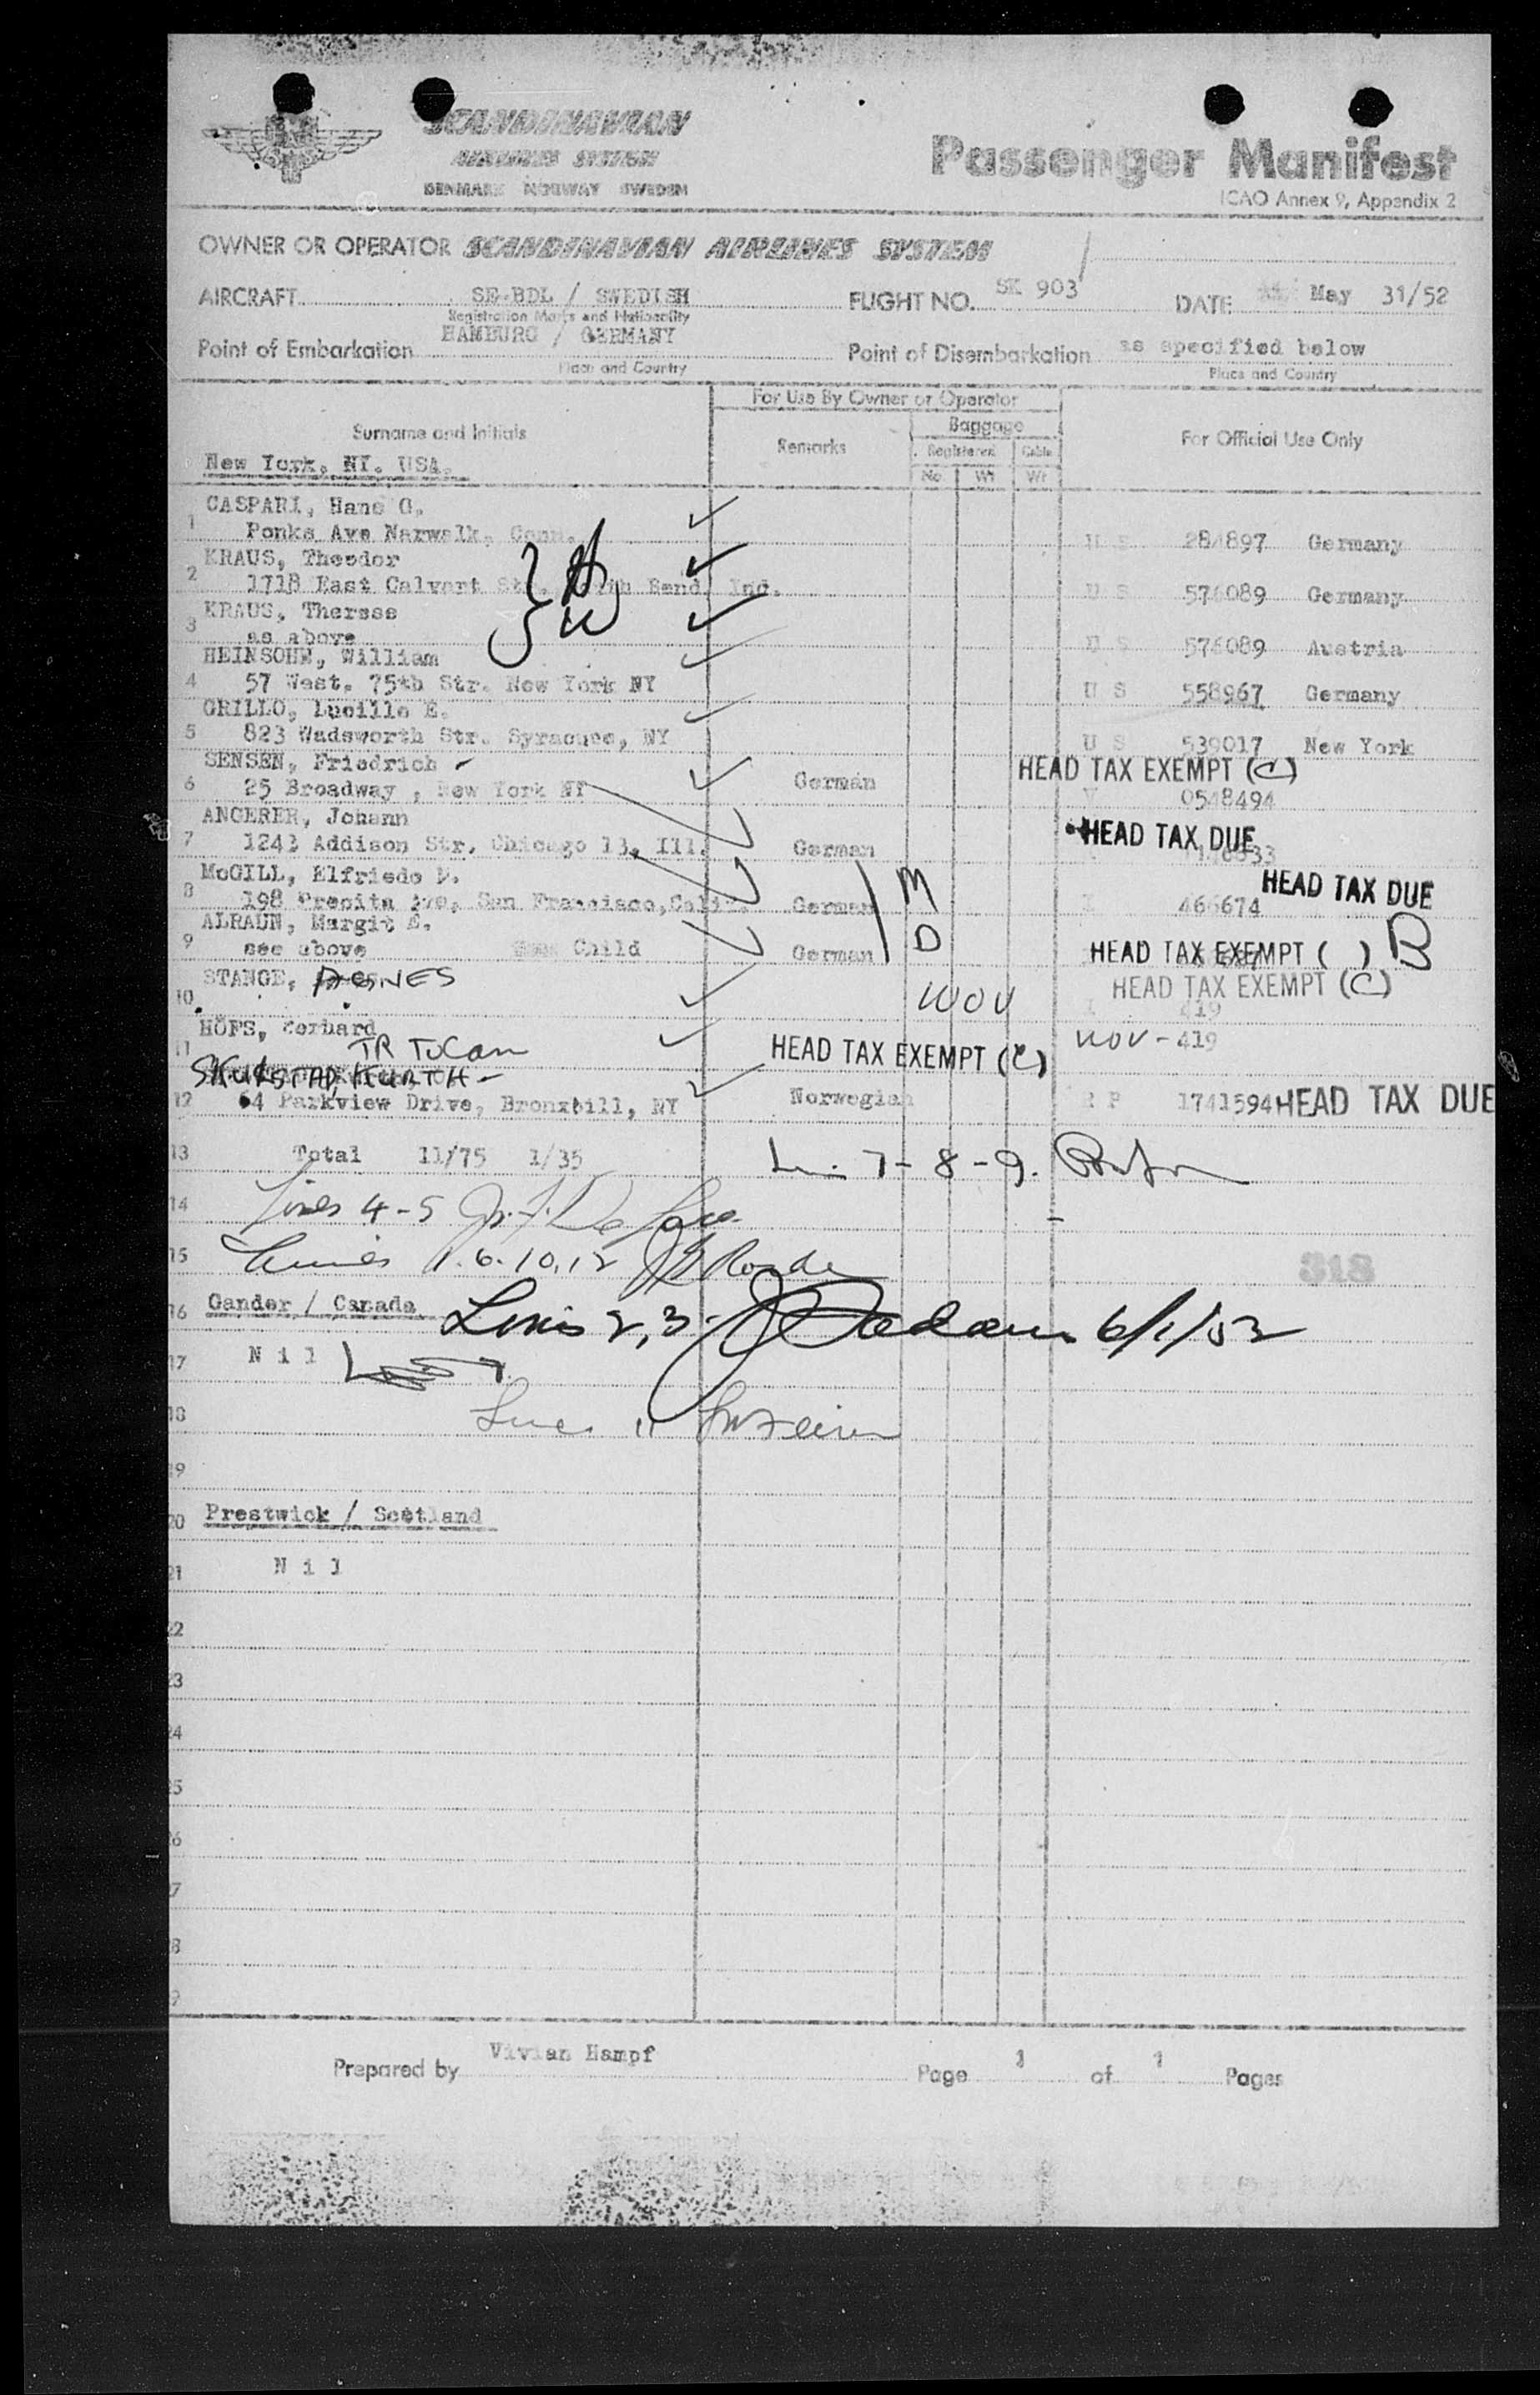 SCANDINAVIAN
AIRLINES SYSTEM
DENMARK NORWAY SWEDEN
Passenger Manifest
ICAO Annex 9, Appendix 2
OWNER OR OPERATOR SCANDINAVIAN AIRLINES SYSTEM
AIRCRAFT SE-BDL / SWEDISH FLIGHT NO. SK 903 DATE May 31/52
Registration Marks and Nationality
Point of Embarkation HAMBURG / GERMANY Point of Disembarkation as specified below
Place and Country Place and Country
For Use By Owner or Operator
Surname and Initials Remarks Baggage For Official Use Only
Registered Cabin
No Wt Wt
New York, NY. USA.
CASPARI, Hans G.
1 Ponks Ave Narwalk, Conn. U S 284897 Germany
KRAUS, Theodor
2 1718 East Calvert Str. South Bend, Ind. U S 576089 Germany
KRAUS, Therese
3 as above U S 576089 Austria
HEINSOHN, William
4 57 West. 75th Str. New York NY U S 558967 Germany
GRILLO, Lucille E.
5 823 Wadsworth Str. Syracuse, NY U S 539017 New York
SENSEN, Friedrich HEAD TAX EXEMPT (C)
6 25 Broadway , New York NY German V 0548494
ANGERER, Johann HEAD TAX DUE
7 Addison Str. Chicago 13, Ill. German
McGILL, Elfriede HEAD TAX DUE
8 198 Precita Ave, San Francisco, Calif. German M 466674
ALRAUN, Margit E.
9 see above Child German D HEAD TAX EXEMPT ( ) B
STANGE, AGNES HEAD TAX EXEMPT (C)
10 WOV 419
HÖFS, Gerhard
11 TR TO Can HEAD TAX EXEMPT (C) WOV - 419
SKURSTAD, KURTH
12 64 Parkview Drive, Bronxbill, NY Norwegian R P 1741594 HEAD TAX DUE
13 Total 11/75 1/35 7-8-9.
14 Lines 4-5
15 Lines 1.6.10,12 318
16 Gander / Canada Lines 2,3 6/1/52
17 N i l
18 Lines 11
19
20 Prestwick / Scotland
21 N i l
22
23
24
25
26
27
28
29
Prepared by Vivian Hampf Page 1 of 1 Pages